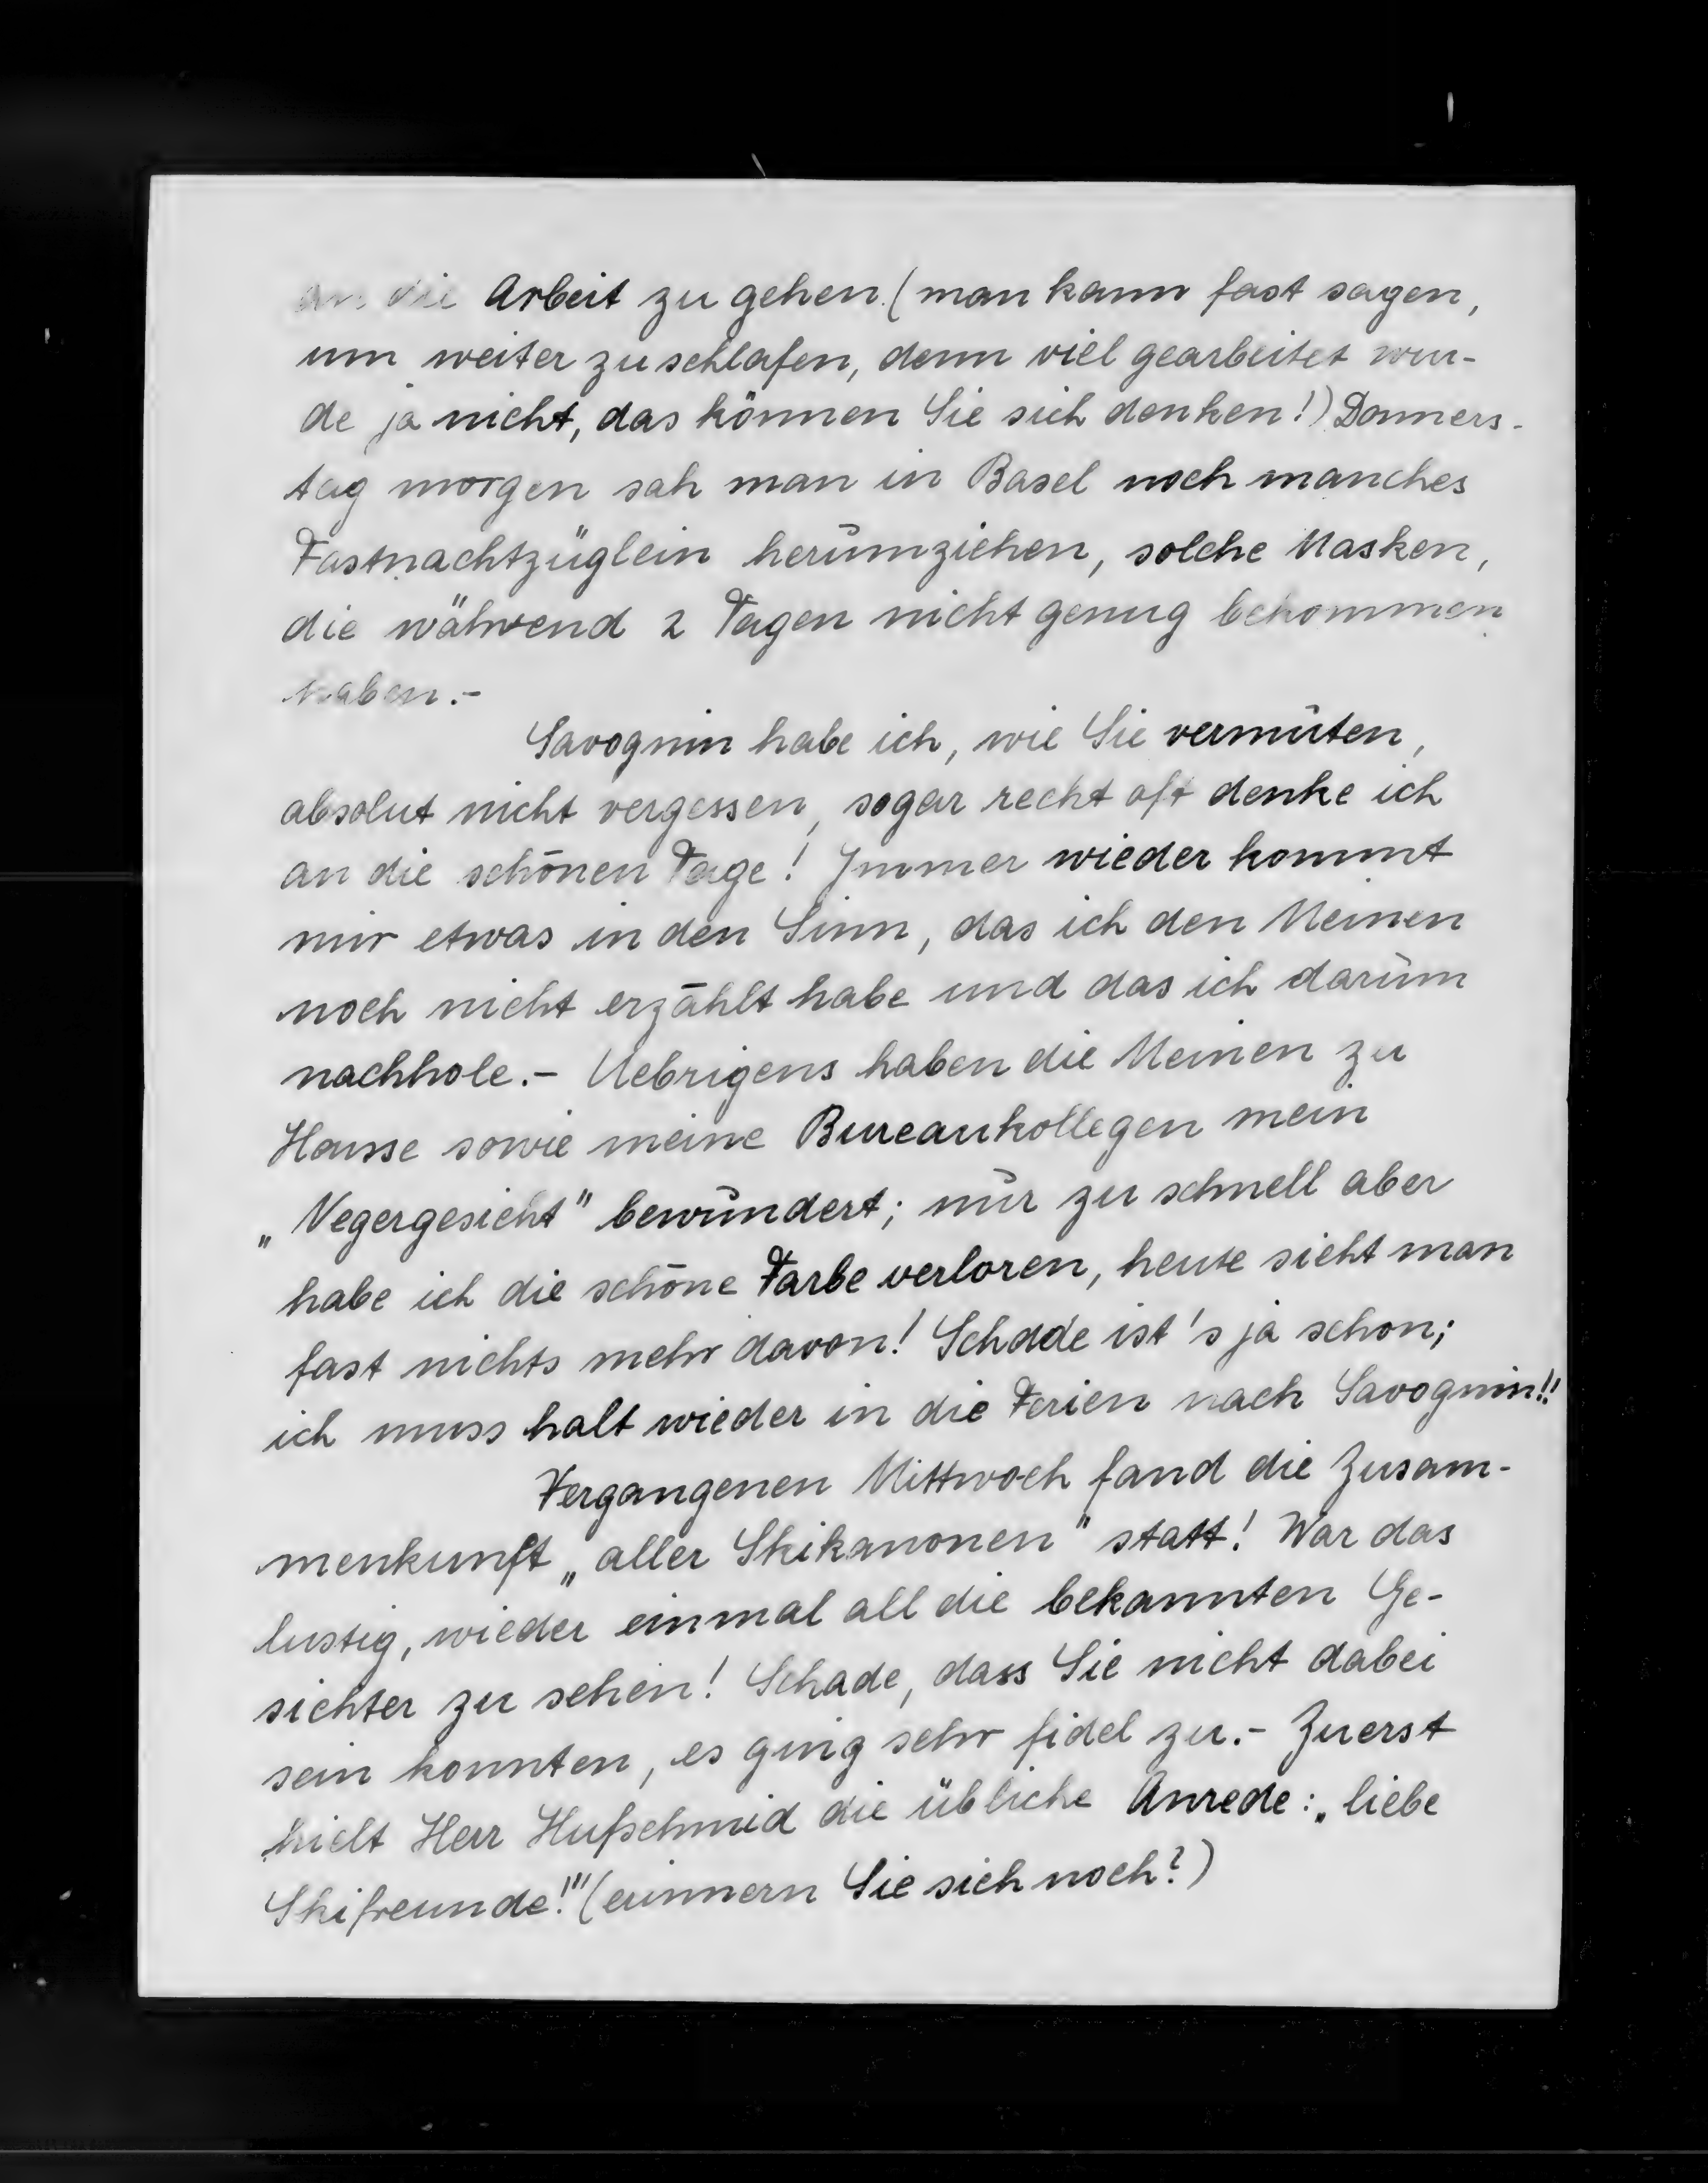 an die Arbeit zu gehen. (man kann fast sagen,
um weiter zu schlafen, denn viel gearbeitet wur-
de ja nicht, das können Sie sich denken!) Donners-
tag morgen sah man in Basel noch manches
Fastnachtzüglein herumziehen, solche Masken,
die während 2 Tagen nicht genug bekommen
haben.-
Savognin habe ich, wie Sie vermuten,
absolut nicht vergessen, sogar recht oft denke ich
an die schönen Tage! Immer wieder kommt
mir etwas in den Sinn, das ich den Meinen
noch nicht erzählt habe und das ich darum
nachhole.- Uebrigens haben die Meinen zu
Hause sowie meine Bureaukollegen mein
„Negergesicht" bewundert; nur zu schnell aber
habe ich die schöne Farbe verloren, heute sieht man
fast nichts mehr davon! Schade ist's ja schon;
ich muss halt wieder in die Ferien nach Savognin!!
Vergangenen Mittwoch fand die Zusam-
menkunft „aller Skikanonen" statt! War das
lustig, wieder einmal all die bekannten Ge-
sichter zu sehen! Schade, dass Sie nicht dabei
sein konnten, es ging sehr fidel zu.- Zuerst
hielt Herr Hufschmid die übliche Anrede: „liebe
Skifreunde!" (erinnern Sie sich noch?)